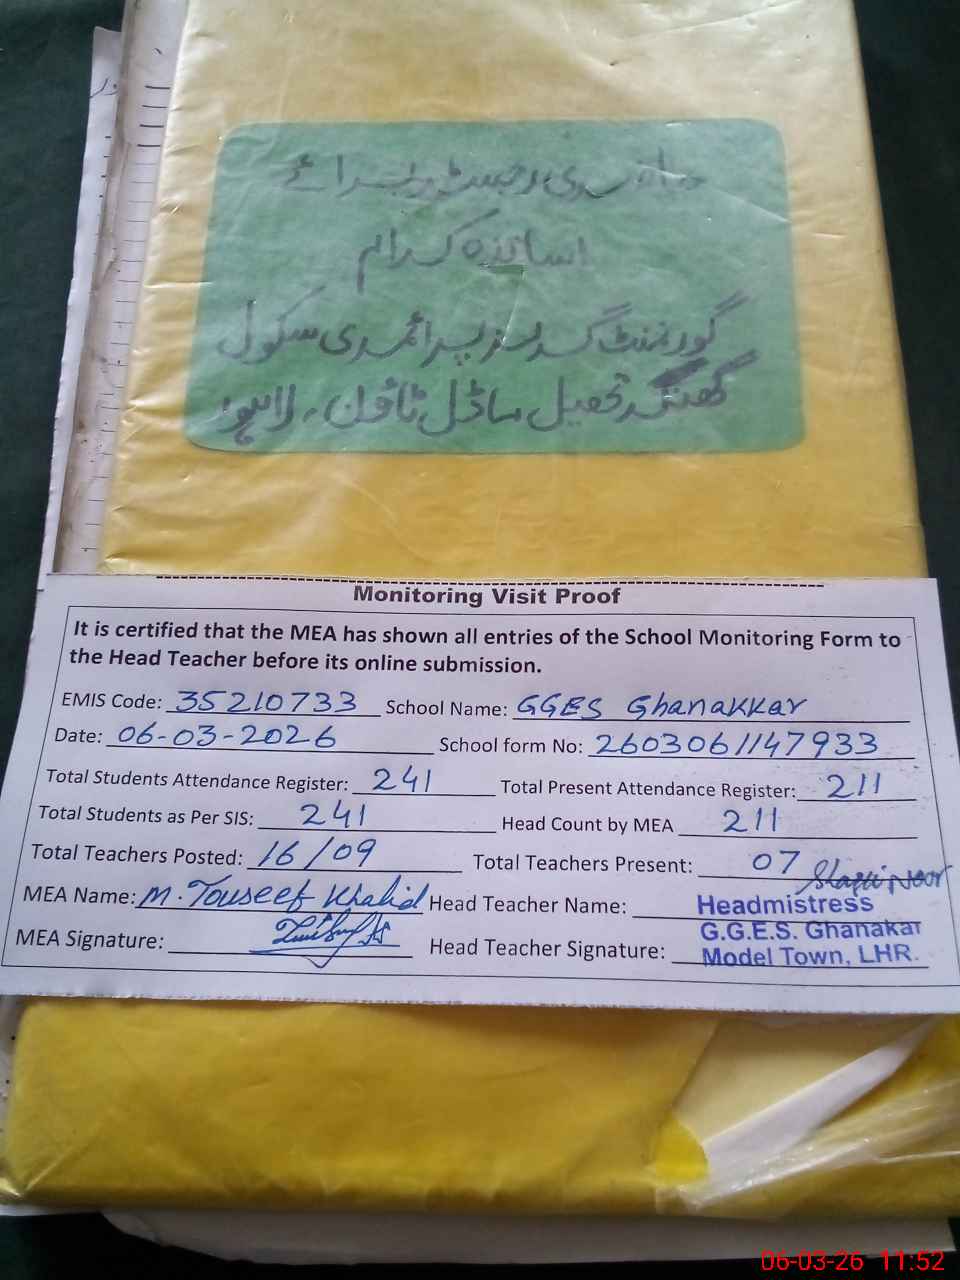 حاضری رجسٹر برائے
اساتذہ کرام
گورنمنٹ گرلز پرائمری سکول
گھنکر تحصیل ماڈل ٹاؤن، لاہور
Monitoring Visit Proof
It is certified that the MEA has shown all entries of the School Monitoring Form to
the Head Teacher before its online submission.
EMIS Code: 35210733 School Name: GGES Ghanakkar
Date: 06-03-2026 School form No: 2603061147933
Total Students Attendance Register: 241 Total Present Attendance Register: 211
Total Students as Per SIS: 241 Head Count by MEA 211
Total Teachers Posted: 16/09 Total Teachers Present: 07
MEA Name: M. Touseef Khalid Head Teacher Name: Headmistress
G.G.E.S. Ghanakar
MEA Signature: Head Teacher Signature: Model Town, LHR.
06-03-26 11:52